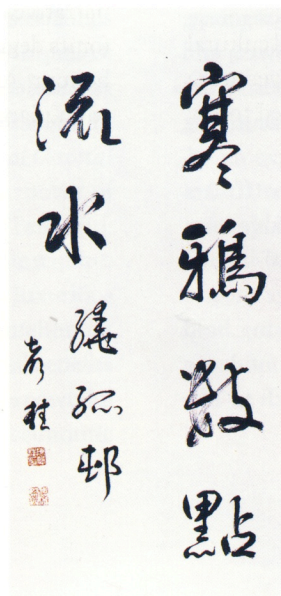 寒鴉數點
流水
繞孤邨
桂